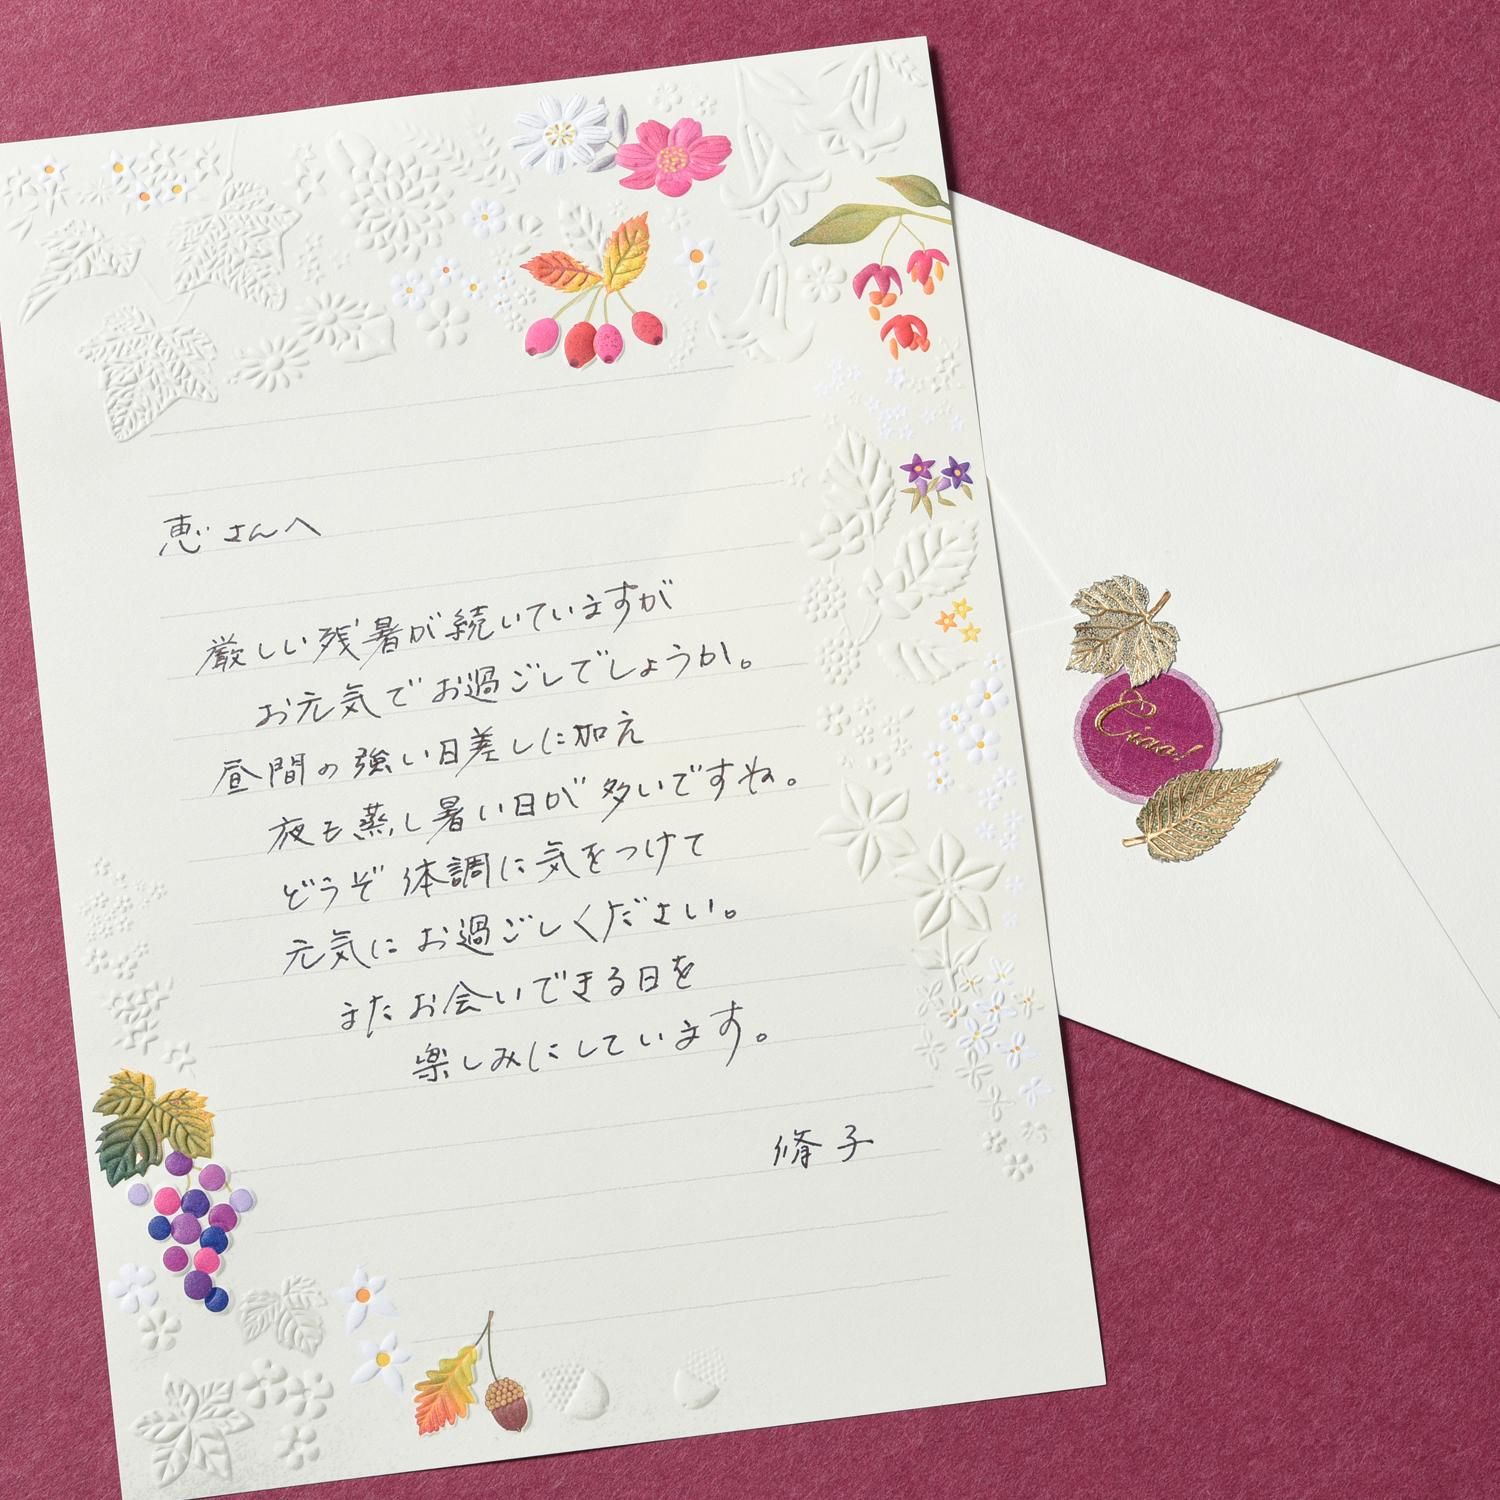 恵さんへ
厳しい残暑が続いていますが
お元気でお過ごしでしょうか。
昼間の強い日差しに加え
夜も蒸し暑い日が多いですね。
どうぞ体調に気をつけて
元気にお過ごしください。
またお会いできる日を
楽しみにしています。
脩子
Ciao!